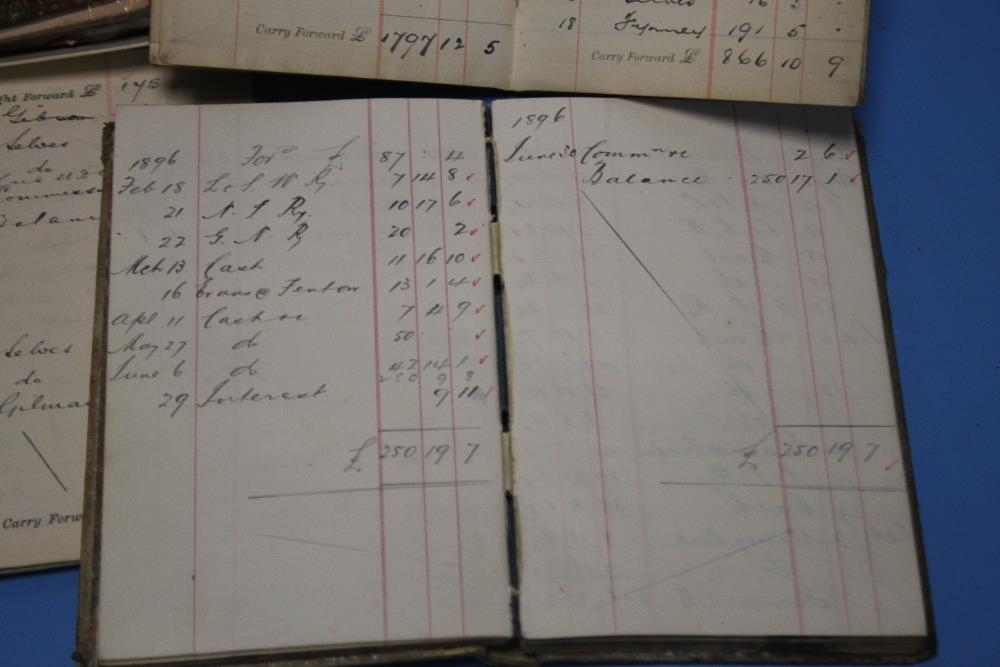 Carry Forward £ 1797 12 5
16 5 .
18 191 5 .
Carry Forward £ 866 10 9
ght Forward £ 175
Gibson
Selves
do
Selves
do
Gilman
Carry Forw
1896 Ford £ 87 . 4
Feb 18 L & S W Ry 7 14 8
21 N. L Ry. 10 17 6
22 G. N. Ry 20 2
Mch 13 Cash 11 16 10
16 Evans & Fenton 13 1 4
Apl 11 Cash &c 7 4 9
May 27 do 50
June 6 do 42 14 1
250 9 8
29 Interest 9 11
£ 250 19 7
1896
June 30 Commn &c 2 6
Balance 250 17 1
£ 250 19 7